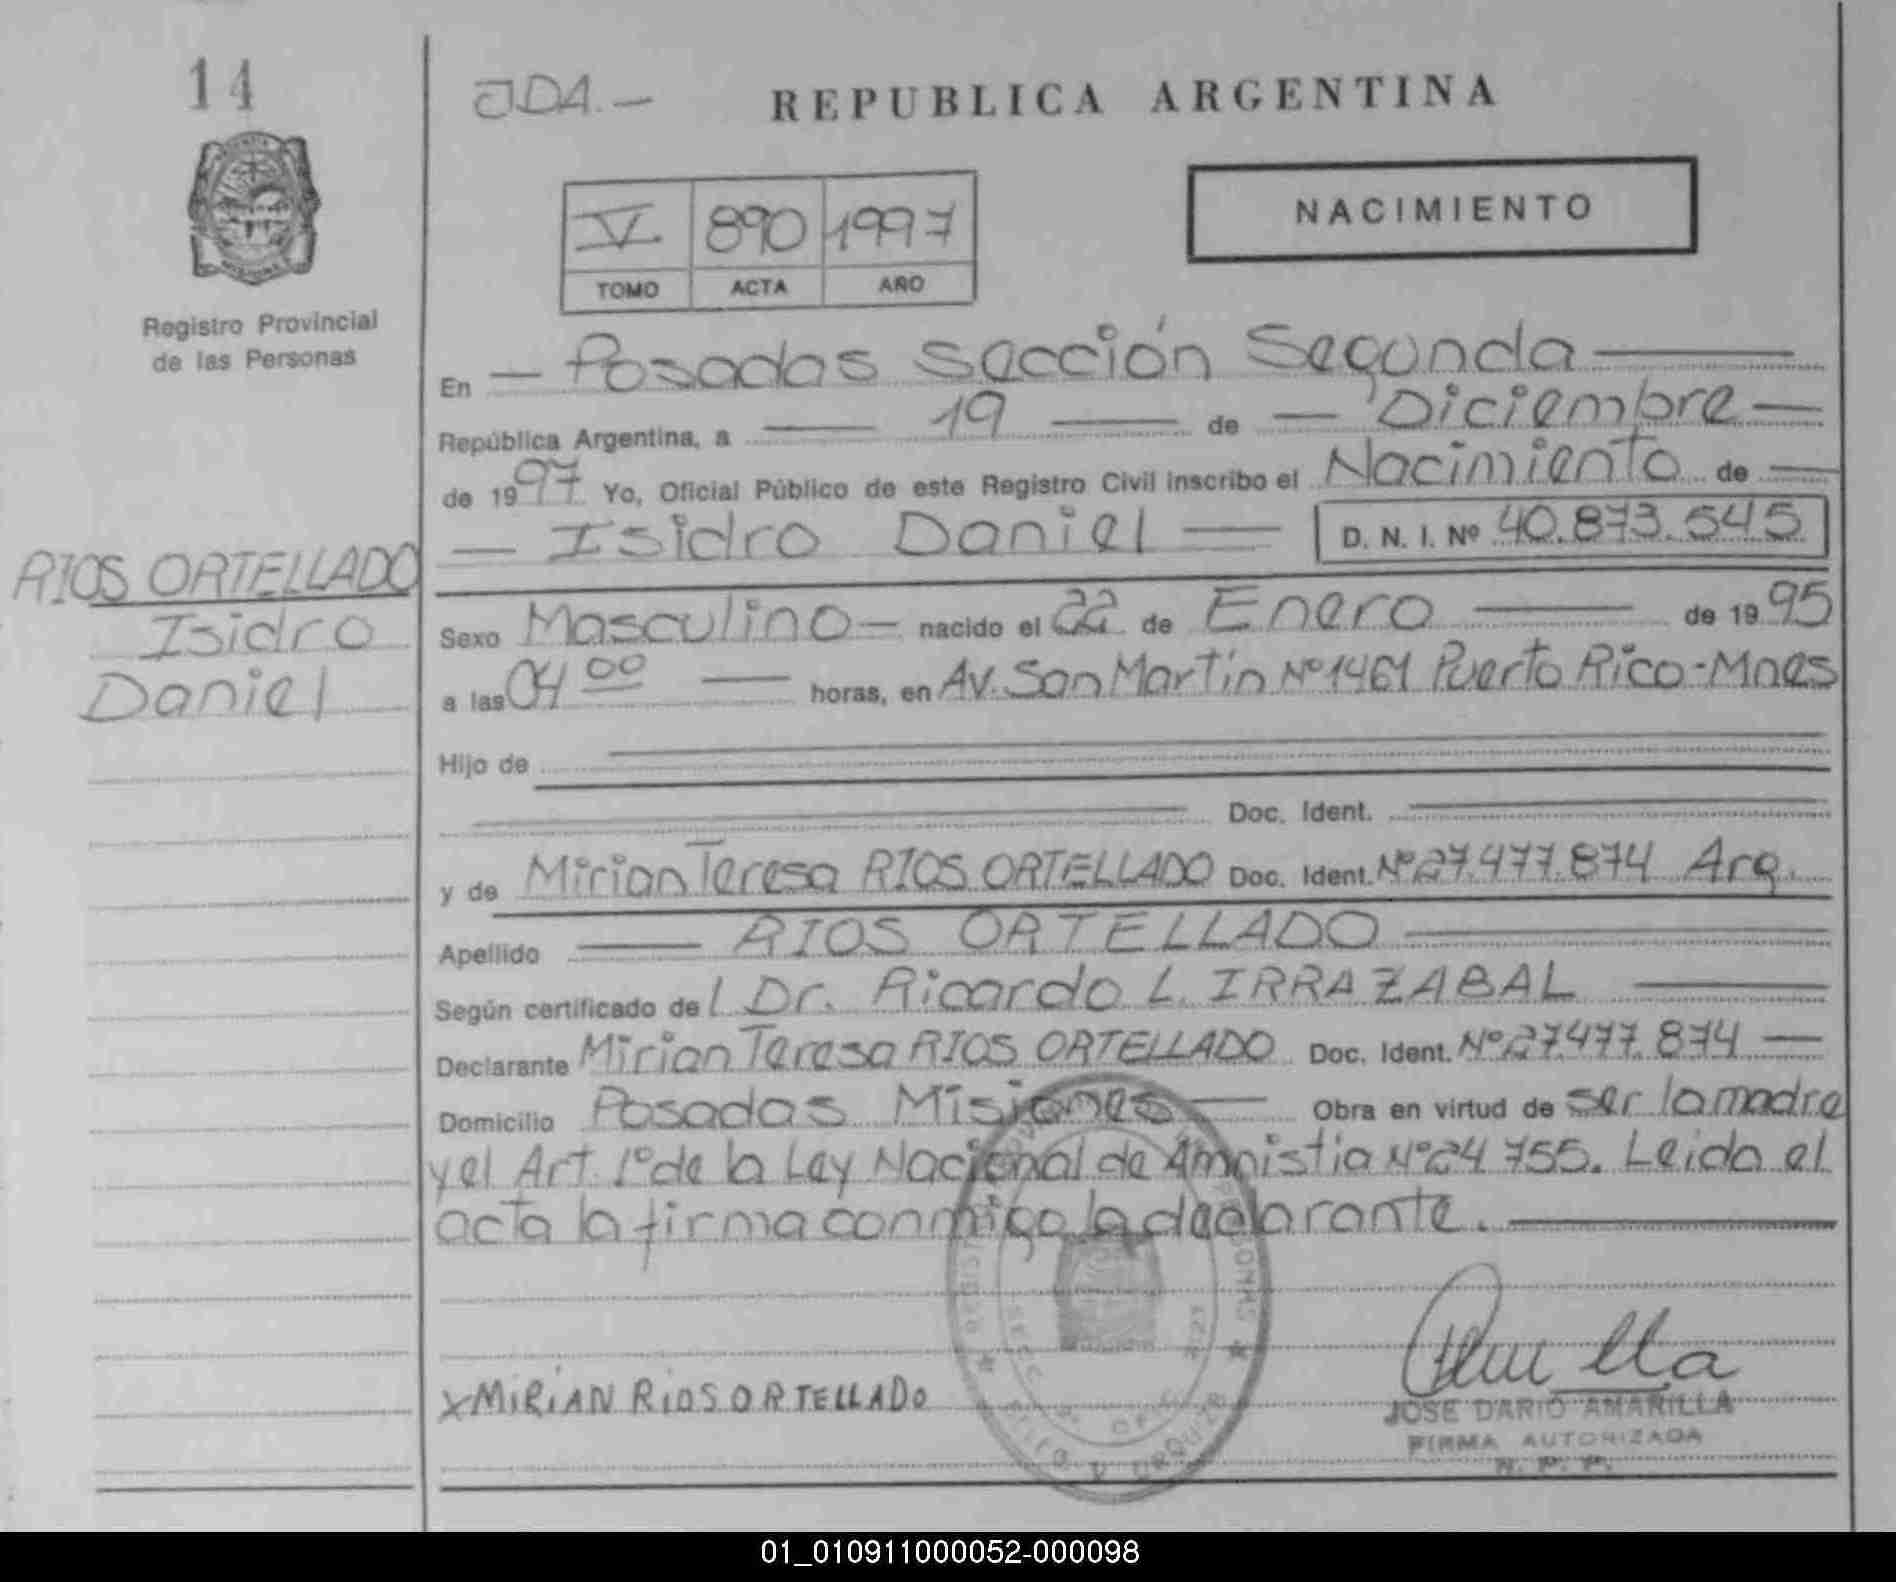 14
JDA.-
REPUBLICA ARGENTINA
V 890 1997
TOMO ACTA AÑO
NACIMIENTO
Registro Provincial
de las Personas
En — Posadas Sección Segunda —
República Argentina, a — 19 — de — Diciembre —
de 1997 Yo, Oficial Público de este Registro Civil inscribo el Nacimiento de —
— Isidro Daniel — D. N. I. Nº 40.873.545
RIOS ORTELLADO
Isidro
Daniel
Sexo Masculino — nacido el 22 de Enero — de 1995
a las 04 00 — horas, en Av. San Martín Nº 1461 Puerto Rico-Mnes
Hijo de —
— Doc. Ident. —
y de Mirian Teresa RIOS ORTELLADO Doc. Ident. Nº 27.477.874 Arg.
Apellido — RIOS ORTELLADO —
Según certificado del Dr. Ricardo L. IRRAZABAL —
Declarante Mirian Teresa RIOS ORTELLADO Doc. Ident. Nº 27.477.874 —
Domicilio Posadas Misiones — Obra en virtud de ser la madre
y el Art. 1º de la Ley Nacional de Amnistia Nº 24 755. Leida el
acta la firma conmigo la declarante. —
X MIRIAN RIOS ORTELLADO
JOSE DARIO AMARILLA
FIRMA AUTORIZADA
R. P. P.
01_010911000052-000098